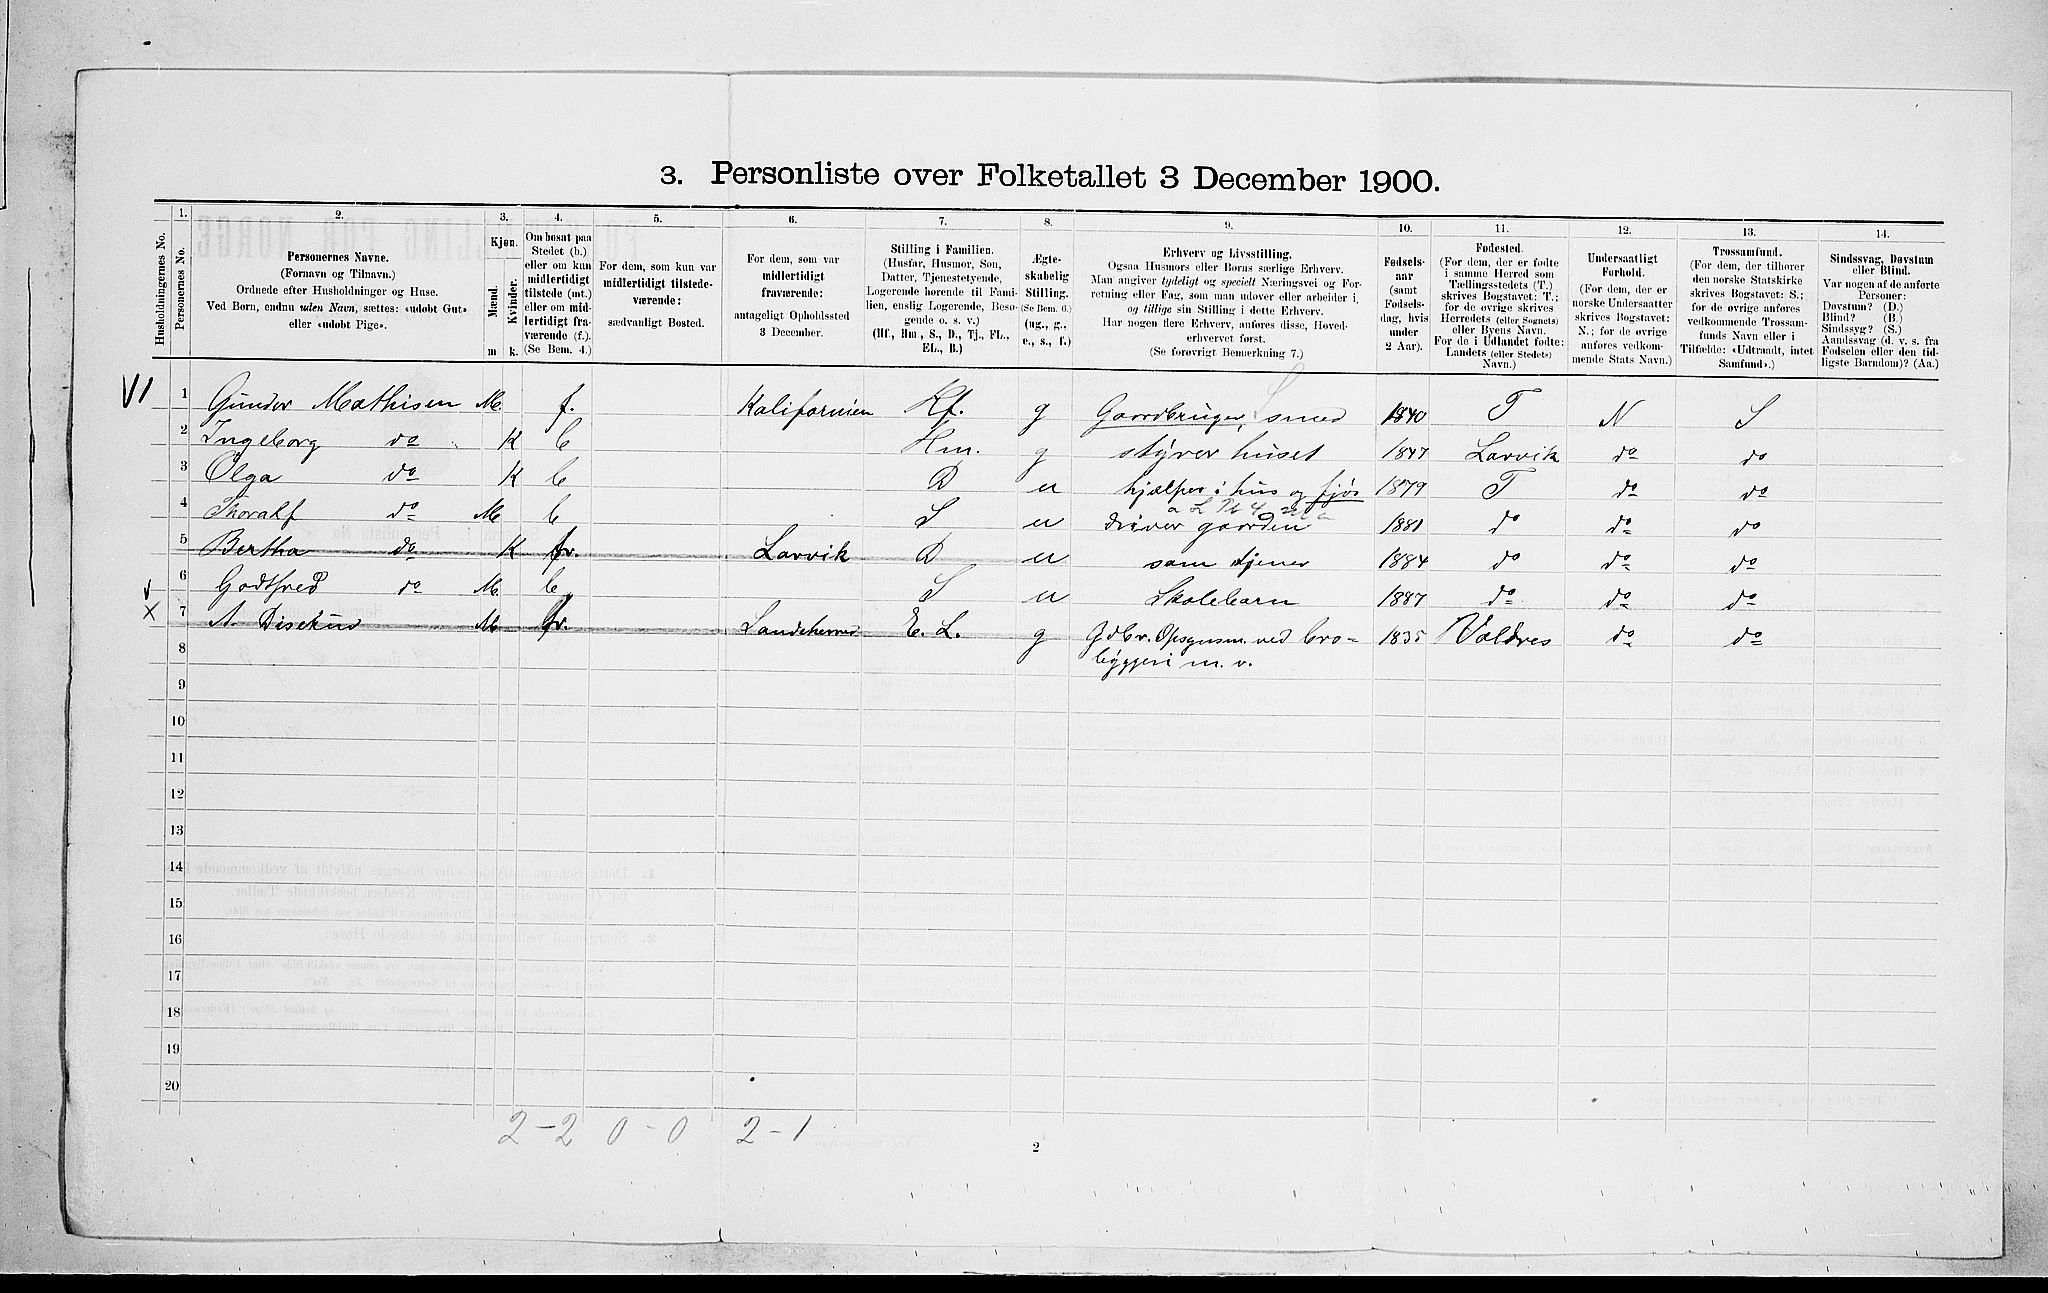 3. Personliste over Folketallet 3 December 1900.
Husholdningernes No.
1.
Personernes No.
2.
Personernes Navne.
(Fornavn og Tilnavn.)
Ordnede efter Husholdninger og Huse.
Ved Børn, endnu uden Navn, sættes: «udøbt Gut»
eller «udøbt Pige».
3.
Kjøn.
Mænd.
Kvinder.
m k.
4.
Om bosat paa
Stedet (b.)
eller om kun
midlertidigt
tilstede (mt.)
eller om mid-
lertidigt fra-
værende (f.).
(Se Bem. 4.)
5.
For dem, som kun var
midlertidigt tilstede-
værende:
sædvanligt Bosted.
6.
For dem, som var
midlertidigt
fraværende:
antageligt Opholdssted
3 December.
7.
Stilling i Familien.
(Husfar, Husmor, Søn,
Datter, Tjenestetyende,
Logerende hørende til Fami-
lien, enslig Logerende, Besø-
gende o. s. v.)
(Hf., Hm., S., D., Tj., FL.,
EL., B.)
8.
Ægte-
skabelig
Stilling.
(Se Bem. 6.)
(ug., g.,
e., s., f.)
9.
Erhverv og Livsstilling.
Ogsaa Husmors eller Børns særlige Erhverv.
Man angiver tydeligt og specielt Næringsvei og For-
retning eller Fag, som man udøver eller arbeider i,
og tillige sin Stilling i dette Erhverv.
Har nogen flere Erhverv, anføres disse, Hoved-
erhvervet først.
(Se forøvrigt Bemærkning 7.)
10.
Fødsels-
aar
(samt
Fødsels-
dag, hvis
under
2 Aar).
11.
Fødested.
(For dem, der er fødte
i samme Herred som
Tællingsstedets (T.)
skrives Bogstavet: T.;
for de øvrige skrives
Herredets (eller Sognets)
eller Byens Navn.
For de i Udlandet fødte:
Landets (eller Stedets)
Navn.)
12.
Undersaatligt
Forhold.
(For dem, der er
norske Undersaatter
skrives Bogstavet:
N.; for de øvrige
anføres vedkom-
mende Stats Navn.)
13.
Trossamfund.
(For dem, der tilhører
den norske Statskirke
skrives Bogstavet: S.;
for de øvrige anføres
vedkommende Trossam-
funds Navn eller i
Tilfælde: «Udtraadt, intet
Samfund».)
14.
Sindssvag, Døvstum
eller Blind.
Var nogen af de anførte
Personer:
Døvstum? (D.)
Blind? (B.)
Sindssyg? (S.)
Aandssvag (d. v. s. fra
Fødselen eller den tid-
ligste Barndom)? (Aa.)
VI 1 Gunder Mathisen M. f. Kalifornien Hf. g Gaardbruger, smed 1840 T N S
2 Ingeborg do K b Hm. g styrer huset 1847 Larvik do do
3 Olga do K b D u hjælper i hus og fjøs 1879 T do do
4 Thoralf do M b S u driver gaarden 1881 do do do
5 Bertha do K fr. Larvik D u som tjener 1884 do do do
6 Godtfred do M b S u Skolebarn 1887 do do do
X 7 A. Disekud M fr. Landeherred E. L. g Gdbr. Opsynsm. ved bro- 1835 Valdres do do
8 byggeri m. v.
9
10
11
12
13
14
15
16
17
18
19
20
2-2 0-0 2-1
2